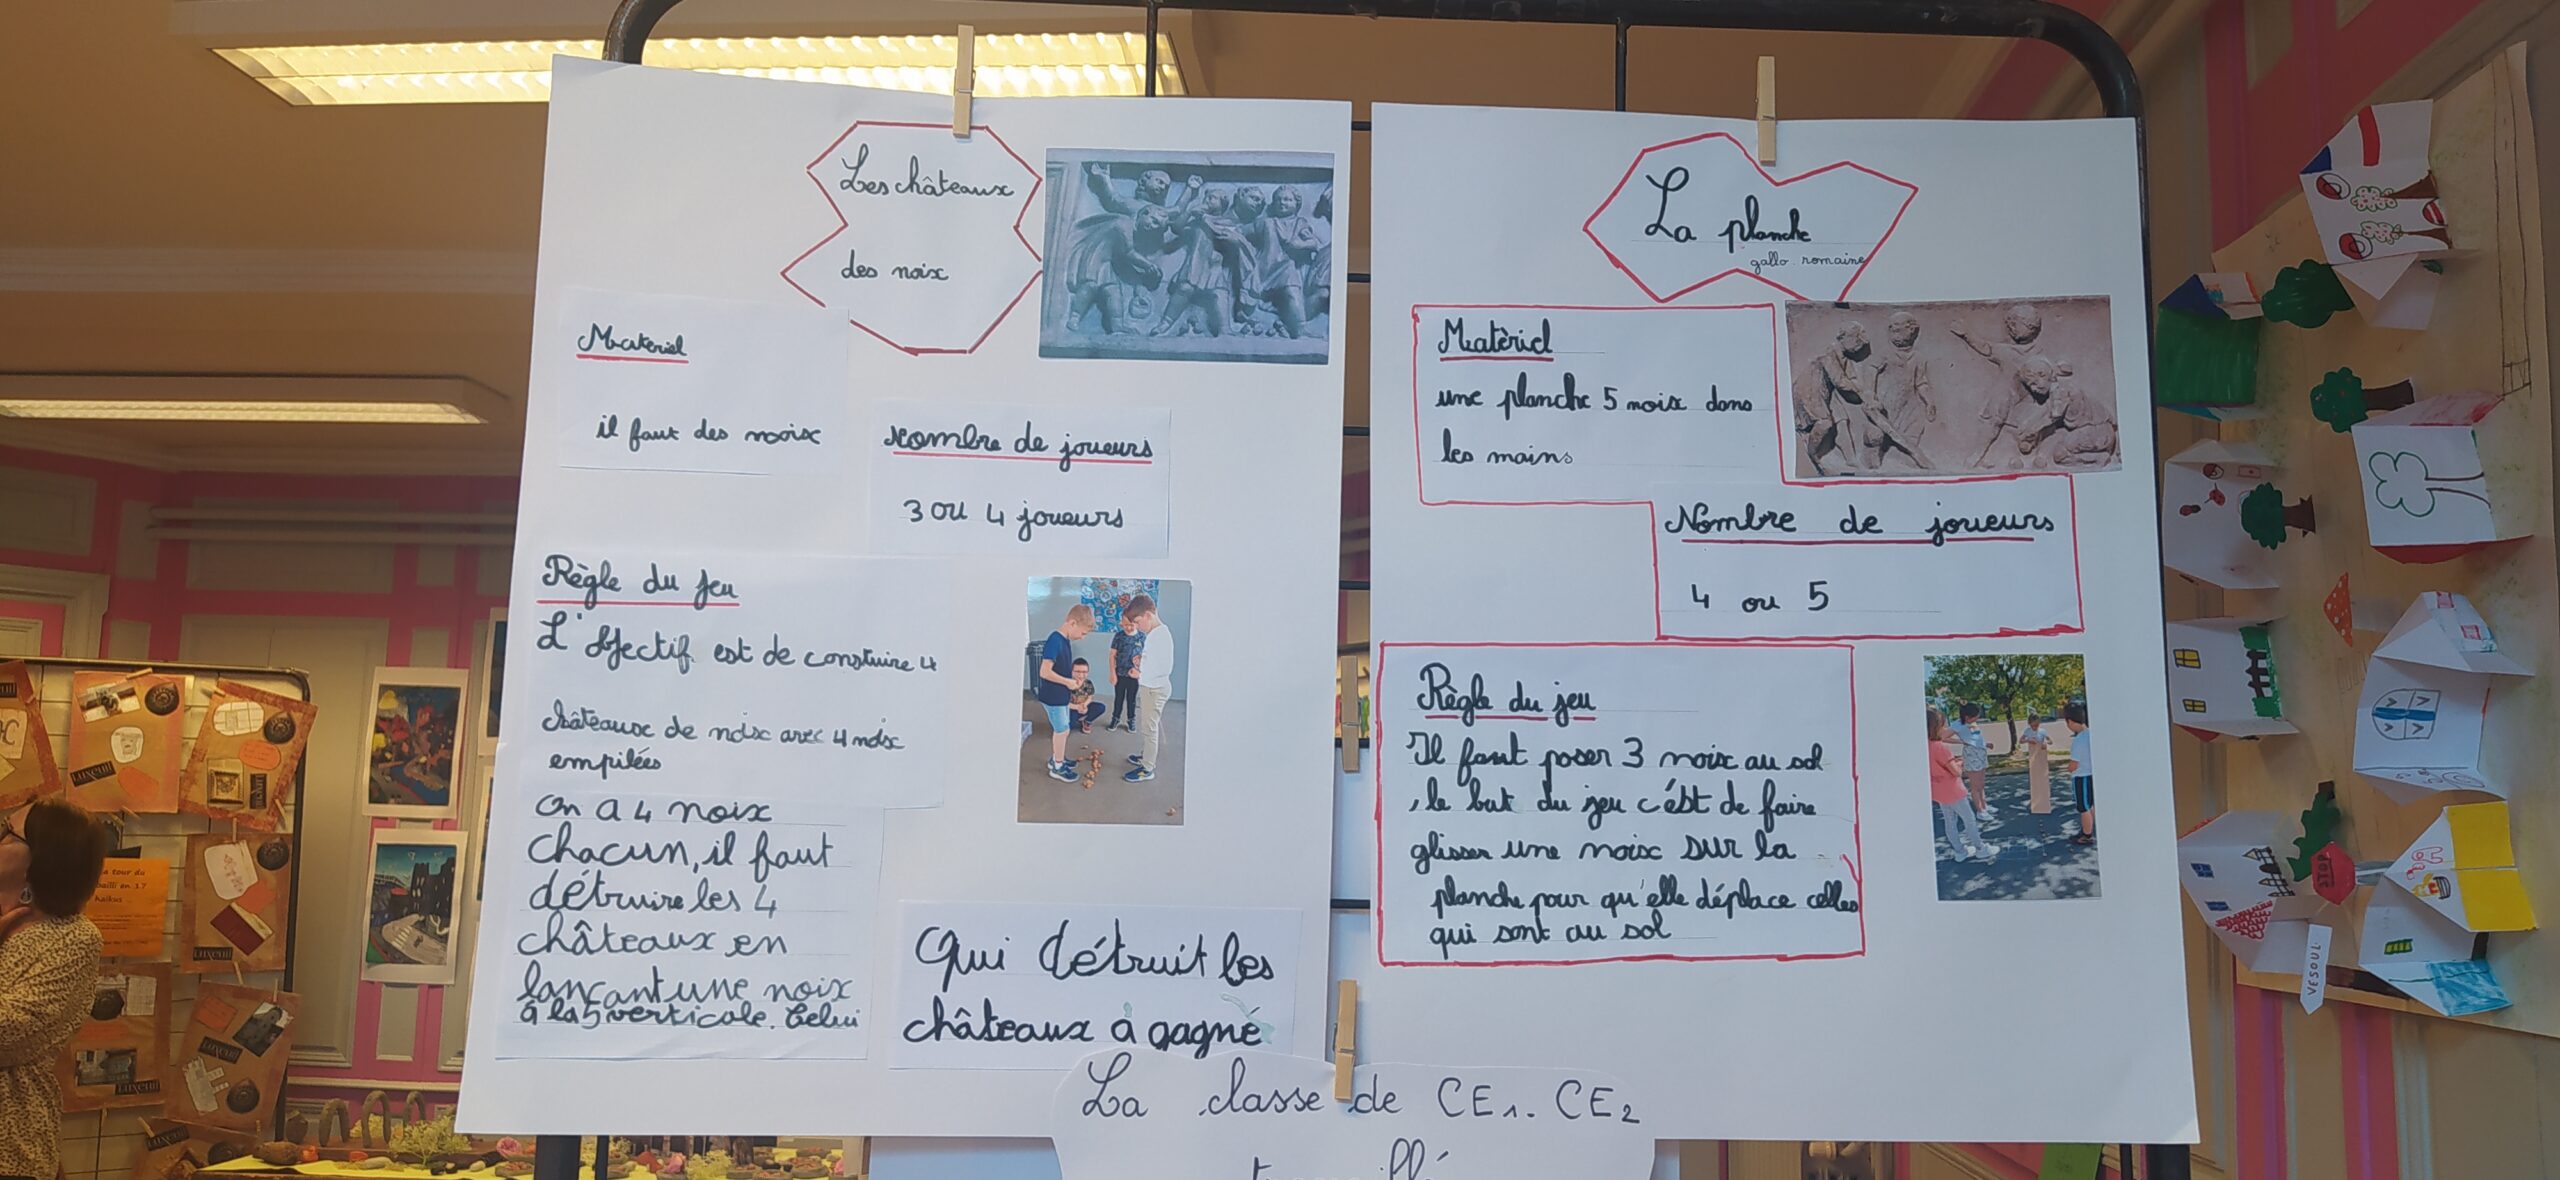 Les châteaux
des noix
Materiel
il faut des noix
Nombre de joueurs
3 ou 4 joueurs
Règle du jeu
L'objectif est de construire 4
châteaux de noix avec 4 noix
empilées
on a 4 noix
chacun, il faut
détruire les 4
châteaux en
lançant une noix
à la verticale. Celui
Qui détruit les
châteaux à gagné
La planche
gallo-romaine
Matèriel
une planche 5 noix dans
les mains
Nombre de joueurs
4 ou 5
Règle du jeu
Il faut poser 3 noix au sol
, le but du jeu c'ést de faire
glisser une noix sur la
planche pour qu'elle déplace celles
qui sont au sol
La classe de CE1. CE2
LUXEUIL
LUXEUIL
LUXEUIL
LUXEUIL
a tour du
bailli en 17
haïkus
STOP
VESOUL